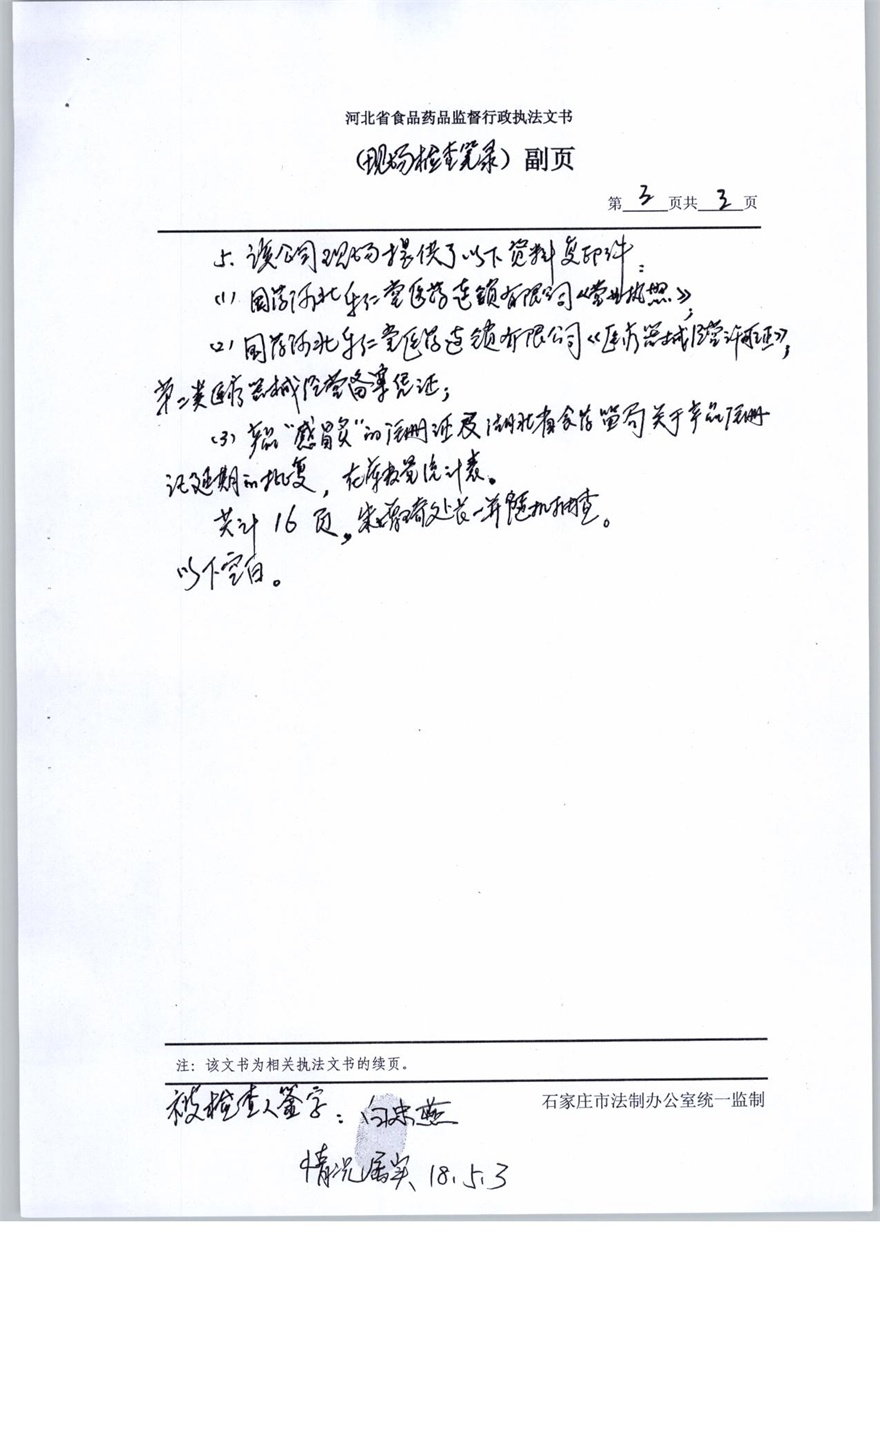 河北省食品药品监督行政执法文书
(现场检查笔录)副页
第 3 页共 3 页
5. 该公司现场提供了以下资料复印件:
(1) 国药河北乐仁堂医药连锁有限公司《营业执照》;
(2) 国药河北乐仁堂医药连锁有限公司《医疗器械经营许可证》,
第二类医疗器械经营备案凭证;
(3) 产品“感冒灸”的注册证及湖北省食药监局关于产品注册
证延期的批复,在库数量统计表。
共计16页。处长一并随机抽查。
以下空白。
注:该文书为相关执法文书的续页。
石家庄市法制办公室统一监制
被检查人签字:
情况属实、18.5.3